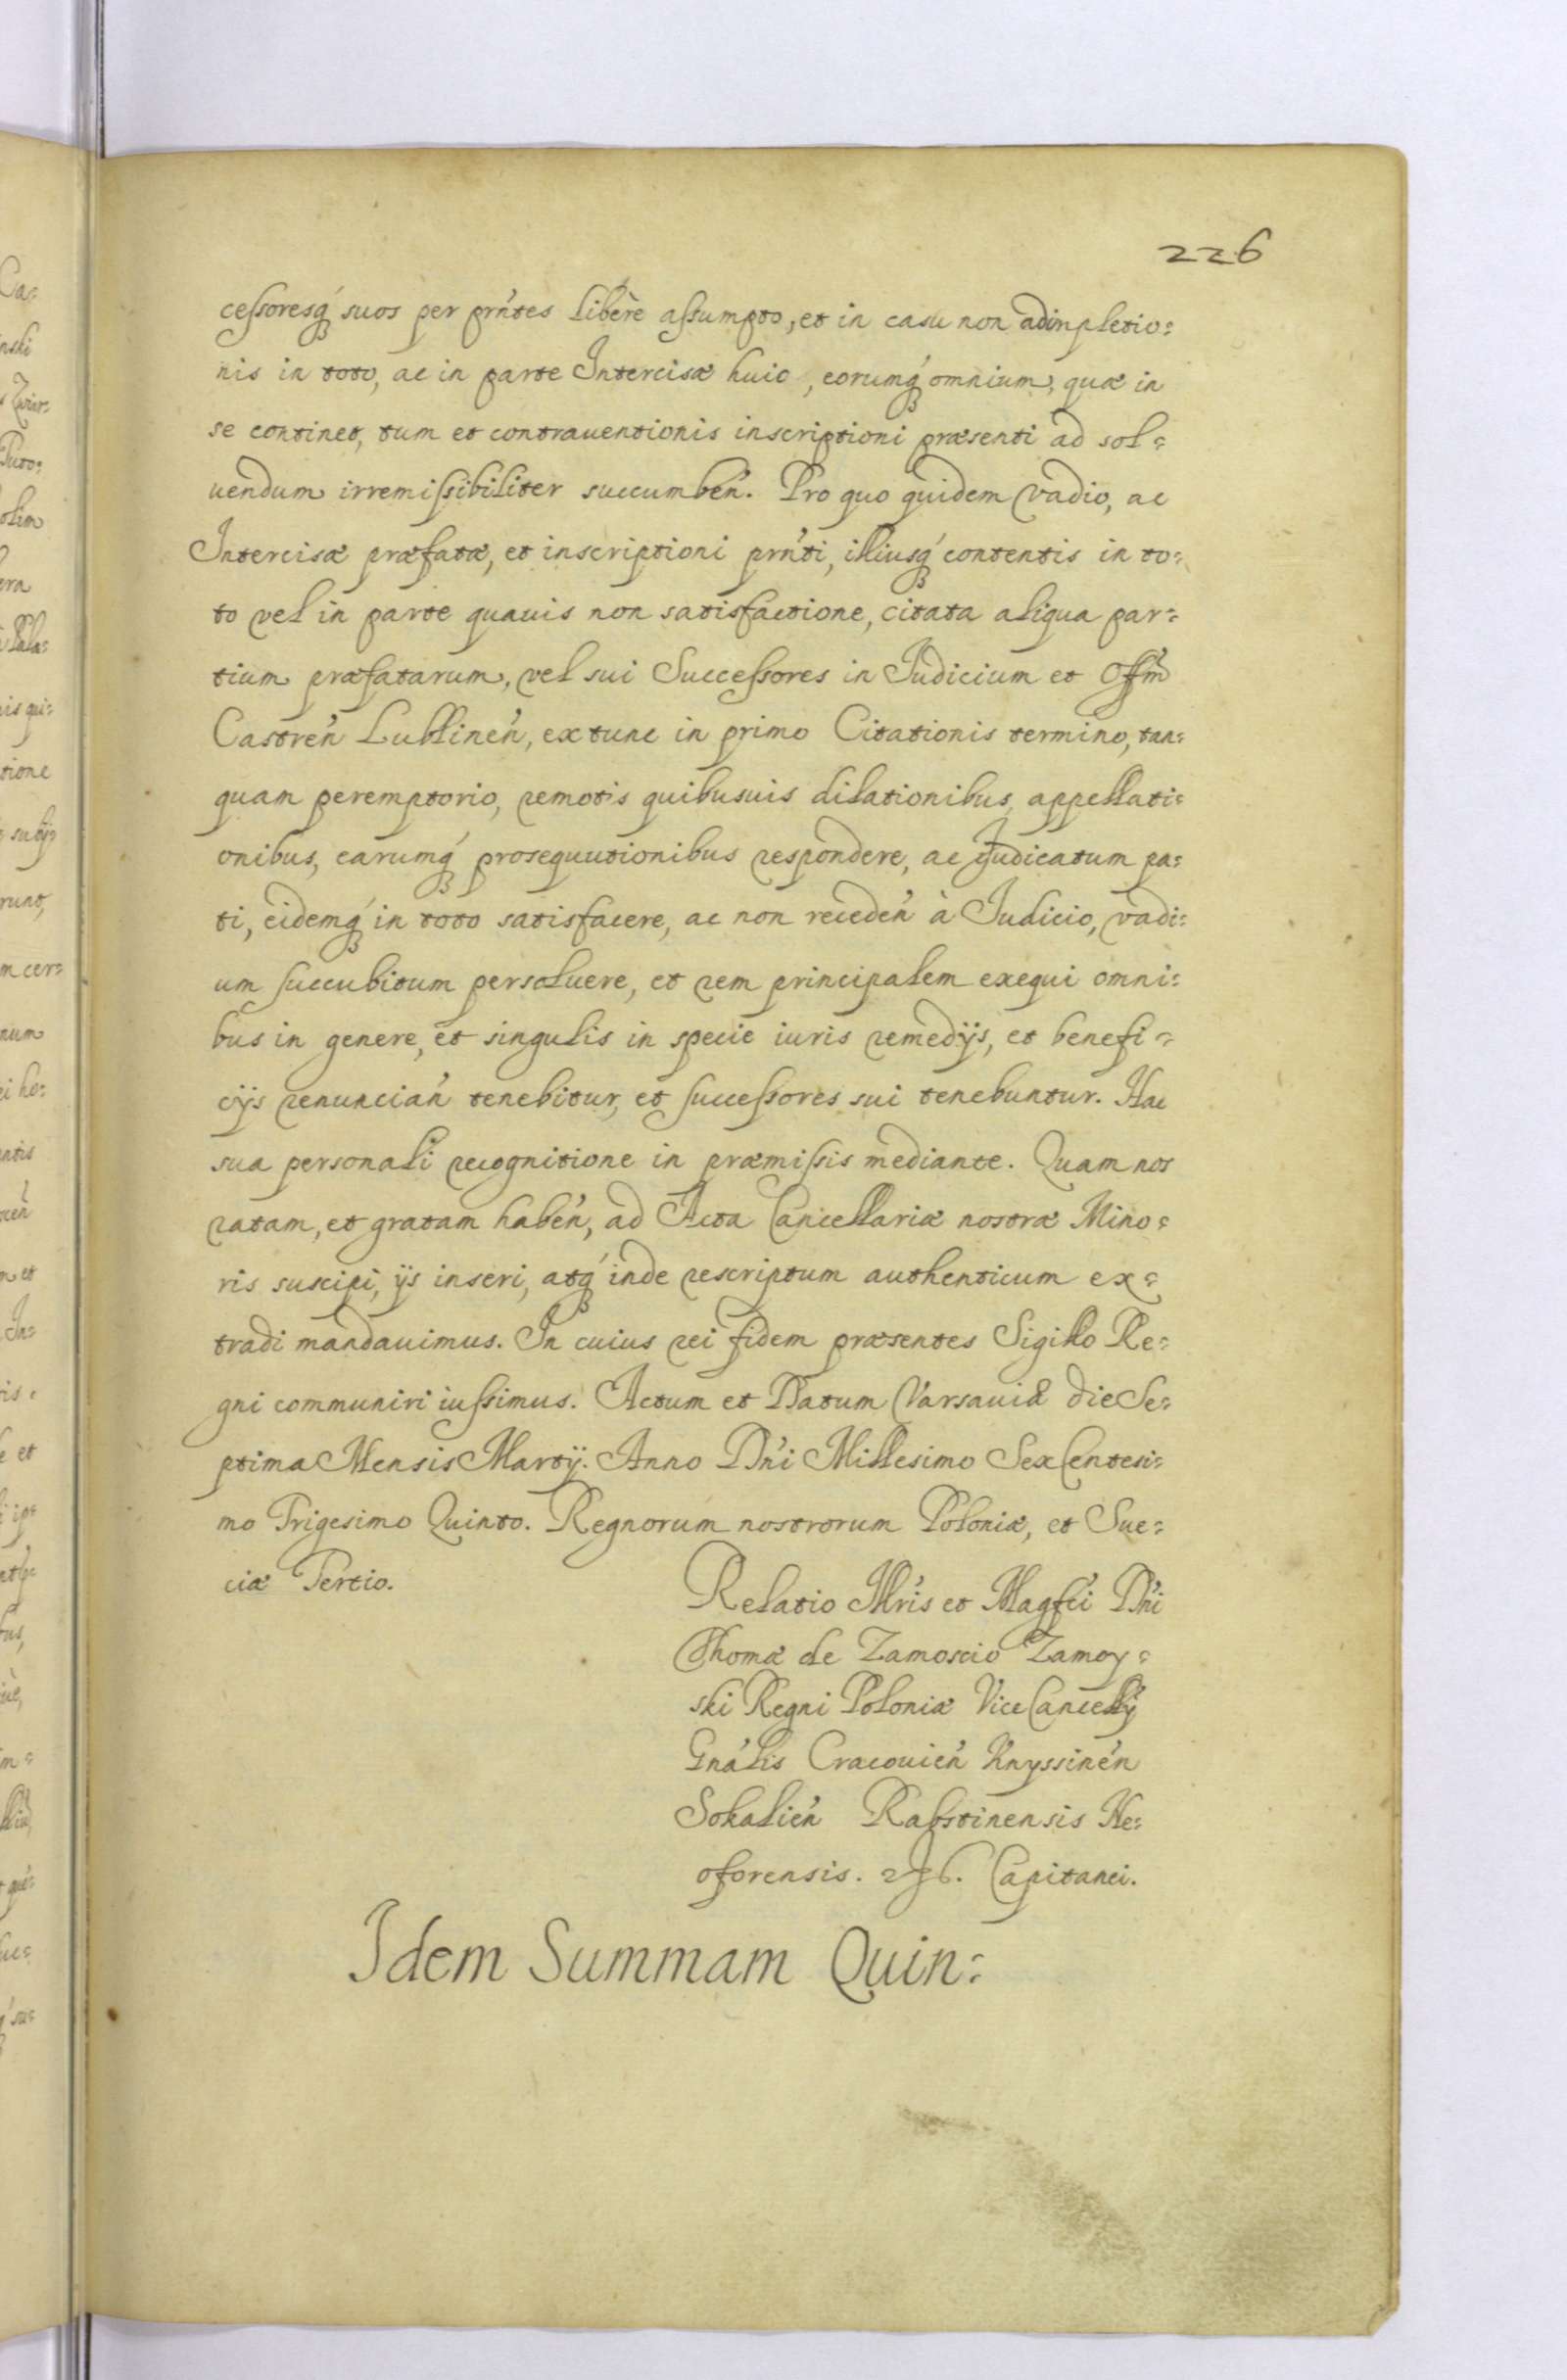 226
cessoresq́ suos per prńtes liberè assumpto, et in casu non adinpletio=
nis in toto, ac in parte Intercisæ huic, eorumq́ omnium, quæ in
se continet, tum et contrauentionis inscriptioni præsenti ad sol=
uendum irremissibiliter succumbeń. Pro quo quidem vadio, ac
Intercisæ præfatæ, et inscriptioni prńti, illiusq́ contentis in to=
to vel in parte quauis non satisfactione, citata aliqua par=
tium præfatarum, vel sui Successores in Judicium et Offm̃
Castreń Lublineń, ex tunc in primo Citationis termino, tan=
quam peremptorio, remotis quibusuis dilationibus, appellati=
onibus, earumq́ prosequutionibus respondere, ac Judicatum pa=
ti, eidemq́ in toto satisfacere, ac non recedeń à Iudicio, vadi=
um succubitum persoluere, et rem principalem exequi omni=
bus in genere, et singulis in specie iuris remedÿs, et benefi=
cÿs renunciań tenebitur, et successores sui tenebuntur. Hac
sua personali recognitione in præmissis mediante. Quam nos
ratam, et gratam habeń, ad Acta Cancellariæ nostræ Mino=
ris suscipi, ÿs inseri, atq́ inde rescriptum authenticum ex=
tradi mandauimus. In cuius rei fidem præsentes Sigillo Re=
gni communiri iussimus. Actum et Datum Varsauiæ die Se=
ptima Mensis Martÿ. Anno Dńi Millesimo SexCentesi=
mo Trigesimo Quinto. Regnorum nostrorum Poloniæ, et Sue=
ciæ Tertio.
Relatio Illŕis et Magfci Dńi
Thomæ de Zamoscio Zamoy=
ski Regni Poloniæ ViceCancellÿ
Gnális Cracouień Knyssineń
Sokalień Rabstinensis Ne=
oforensis. Capitanei.
Idem Summam Quin=